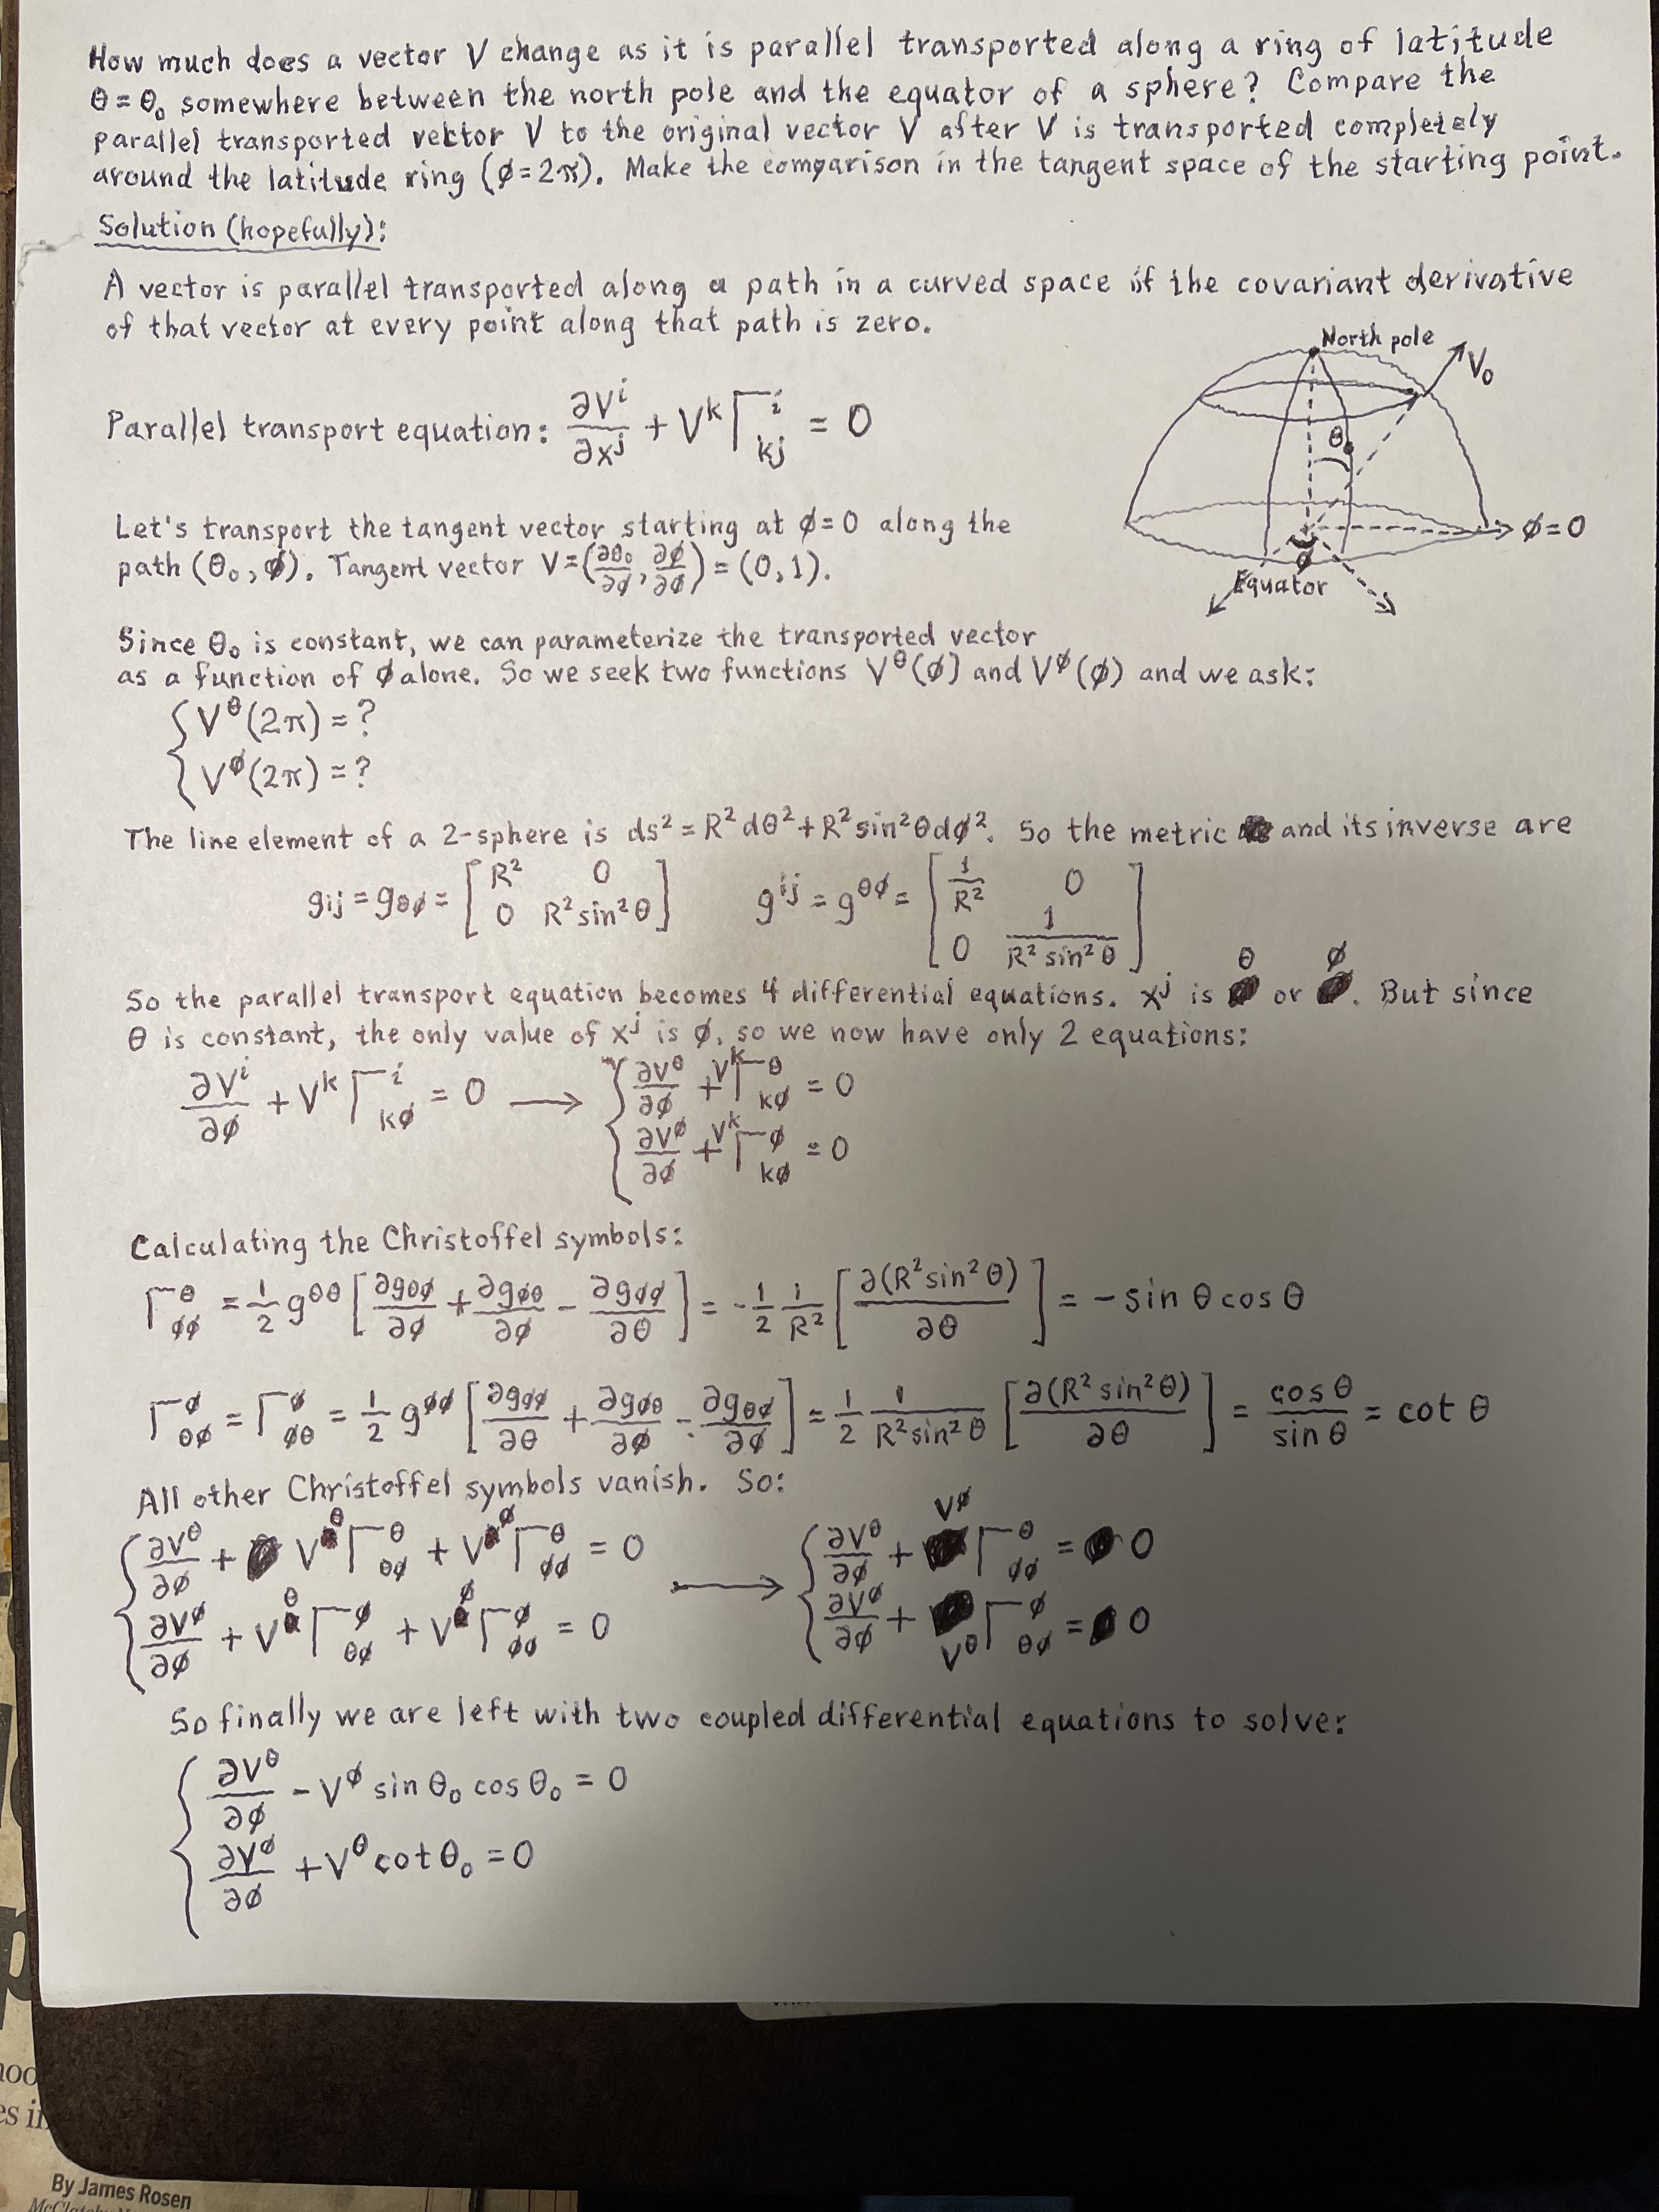 How much does a vector V change as it is parallel transported along a ring of latitude
θ = θ₀ somewhere between the north pole and the equator of a sphere? Compare the
parallel transported vector V to the original vector V after V is transported completely
around the latitude ring (ϕ=2π). Make the comparison in the tangent space of the starting point.
Solution (hopefully):
A vector is parallel transported along a path in a curved space if the covariant derivative
of that vector at every point along that path is zero.
North pole
V₀
θ₀
ϕ=0
ϕ
Equator
Parallel transport equation: ∂Vⁱ/∂xʲ + Vᵏ Γⁱ_kj = 0
Let's transport the tangent vector starting at ϕ=0 along the
path (θ₀, ϕ). Tangent vector V = (∂θ₀/∂ϕ, ∂ϕ/∂ϕ) = (0,1).
Since θ₀ is constant, we can parameterize the transported vector
as a function of ϕ alone. So we seek two functions V^θ(ϕ) and V^ϕ(ϕ) and we ask:
{ V^θ(2π) = ?
V^ϕ(2π) = ?
The line element of a 2-sphere is ds² = R²dθ² + R²sin²θdϕ². So the metric and its inverse are
g_ij = g_θϕ = [ R² 0 ; 0 R²sin²θ ] g^ij = g^θϕ = [ 1/R² 0 ; 0 1/(R² sin²θ) ]
So the parallel transport equation becomes 4 differential equations. xʲ is θ or ϕ. But since
θ is constant, the only value of xʲ is ϕ, so we now have only 2 equations:
∂Vⁱ/∂ϕ + Vᵏ Γⁱ_kϕ = 0 → { ∂V^θ/∂ϕ + Vᵏ Γ^θ_kϕ = 0
∂V^ϕ/∂ϕ + Vᵏ Γ^ϕ_kϕ = 0
Calculating the Christoffel symbols:
Γ^θ_ϕϕ = 1/2 g^θθ [ ∂g_θϕ/∂ϕ + ∂g_ϕθ/∂ϕ - ∂g_ϕϕ/∂θ ] = - 1/2 1/R² [ ∂(R²sin²θ)/∂θ ] = -sin θ cos θ
Γ^ϕ_θϕ = Γ^ϕ_ϕθ = 1/2 g^ϕϕ [ ∂g_ϕϕ/∂θ + ∂g_ϕθ/∂ϕ - ∂g_θϕ/∂ϕ ] = 1/2 1/(R²sin²θ) [ ∂(R²sin²θ)/∂θ ] = cos θ/sin θ = cot θ
All other Christoffel symbols vanish. So:
{ ∂V^θ/∂ϕ + V^θ Γ^θ_θϕ + V^ϕ Γ^θ_ϕϕ = 0 → { ∂V^θ/∂ϕ + V^ϕ Γ^θ_ϕϕ = 0
∂V^ϕ/∂ϕ + V^θ Γ^ϕ_θϕ + V^ϕ Γ^ϕ_ϕϕ = 0 ∂V^ϕ/∂ϕ + V^θ Γ^ϕ_θϕ = 0
So finally we are left with two coupled differential equations to solve:
{ ∂V^θ/∂ϕ - V^ϕ sin θ₀ cos θ₀ = 0
∂V^ϕ/∂ϕ + V^θ cot θ₀ = 0
By James Rosen